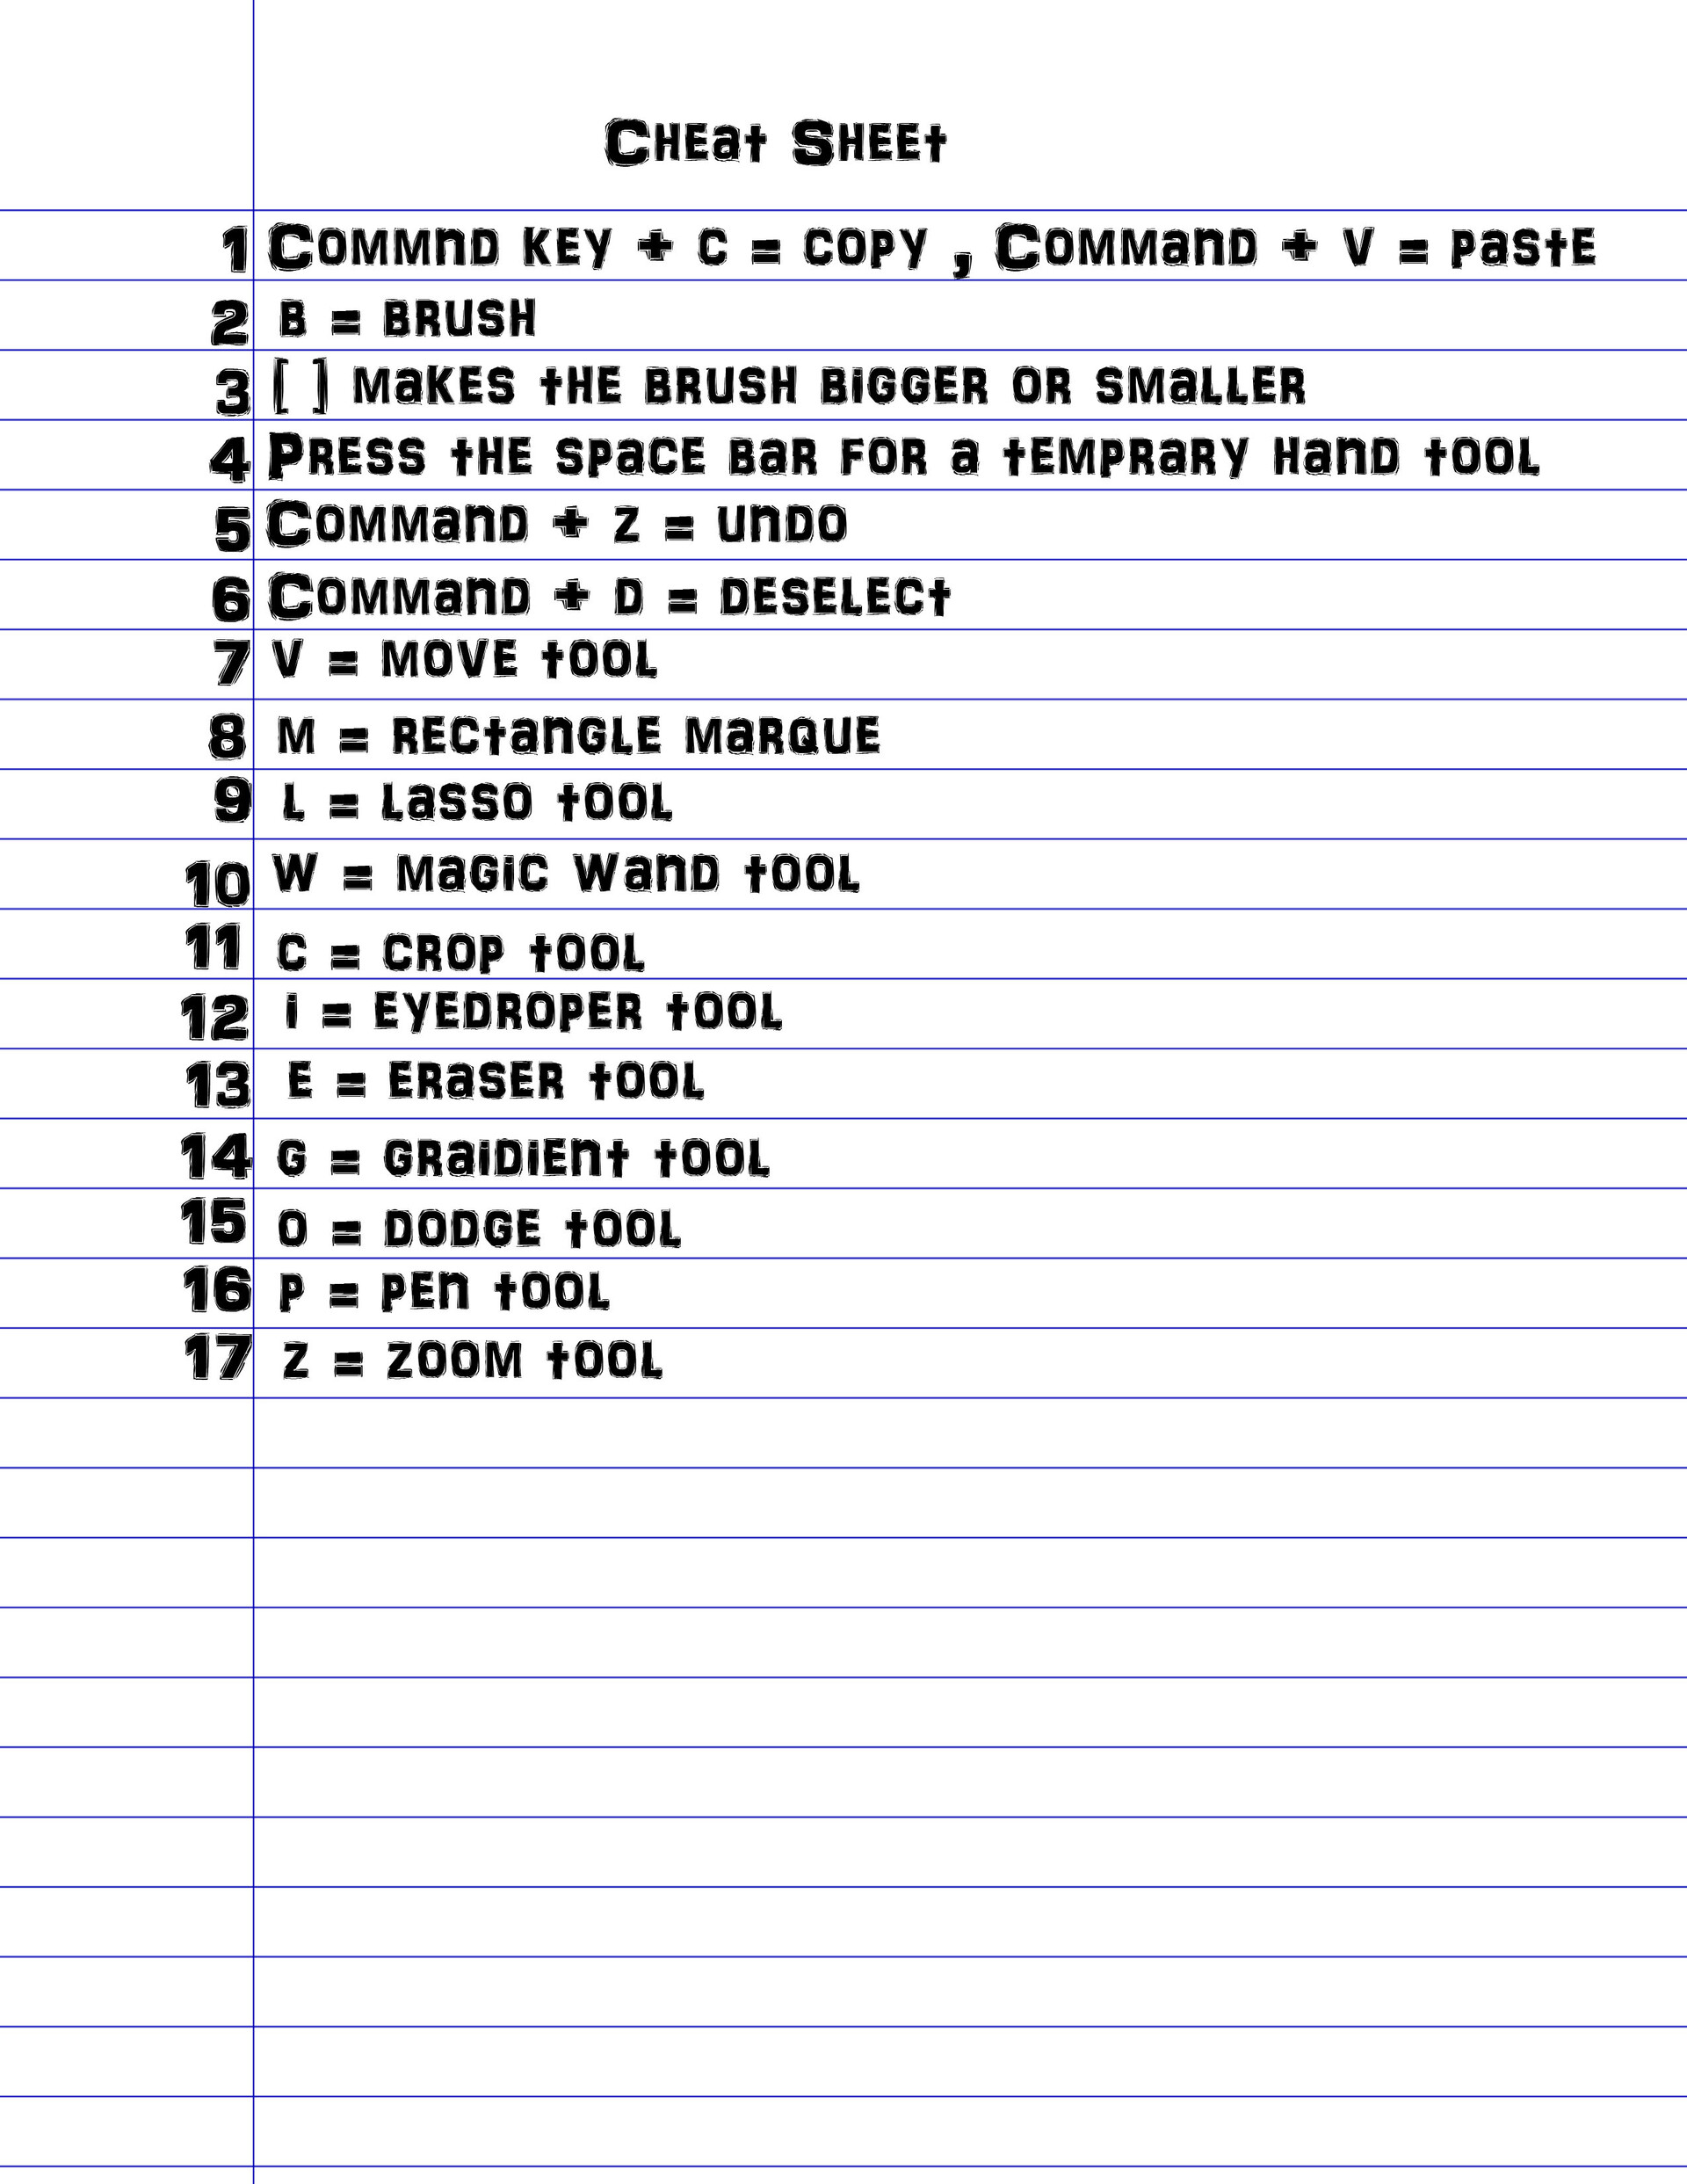 Cheat Sheet
1 Commnd key + c = copy , Command + v = paste
2 B = Brush
3 [ ] makes the brush bigger or smaller
4 Press the space bar for a temprary hand tool
5 Command + z = undo
6 Command + D = deselect
7 V = move tool
8 M = rectangle marque
9 L = Lasso tool
10 W = Magic Wand tool
11 C = crop tool
12 i = eyedroper tool
13 E = Eraser tool
14 G = Graidient tool
15 O = dodge tool
16 P = pen tool
17 Z = zoom tool